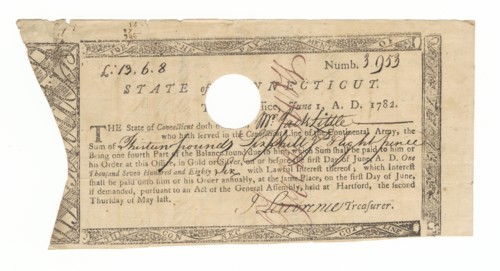 PAY
£13.6.8 Numb. 3953
STATE of CONNECTICUT.
fice, June 1, A. D. 1782.
THE State of Connecticut doth Mr Jack Little
who hath served in the Connecticut Line of the Continental Army, the
Sum of thirteen pounds six shill & eight pence
Being one fourth Part of the Balance found due to him, which Sum shall be paid to him or
his Order at this Office, in Gold or Silver, on or before the first Day of June A. D. One
Thousand Seven Hundred and Eighty six with Lawful Interest thereof; which Interest
shall be paid unto him or his Order annually, at the same Place, on the first Day of June,
if demanded, pursuant to an Act of the General Assembly, held at Hartford, the second
Thursday of May last.
J Lawrence Treasurer.